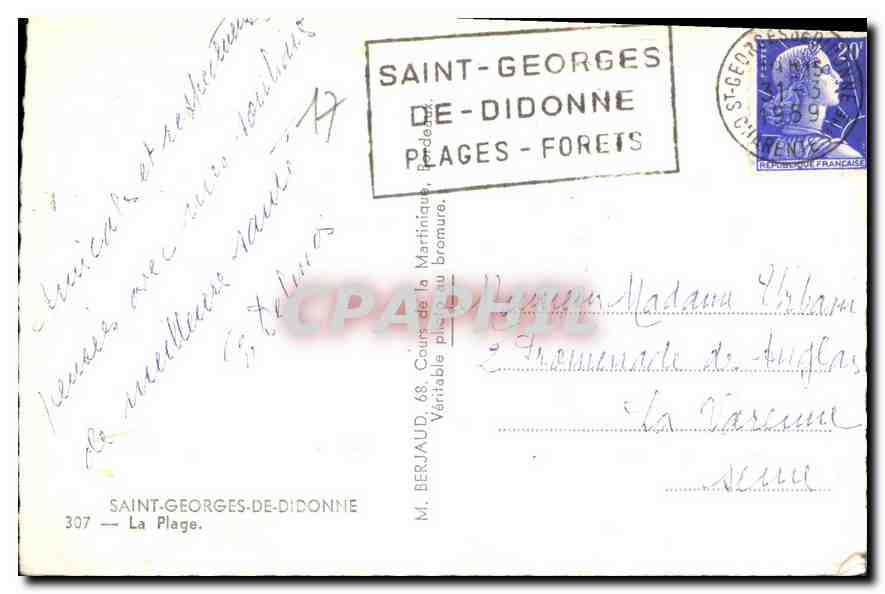 SAINT-GEORGES
DE-DIDONNE
PLAGES - FORETS
ST-GEORGES-DE-DIDONNE
CHARENTE
POSTES
20F
REPUBLIQUE FRANÇAISE
17
Amicales et respectueuses
pensées avec mes souhaits
de meilleure santé
Monsieur Madame Urbain
2 Promenade des Anglais
La Varenne
Seine
M. BERJAUD, 68, Cours de la Martinique, Bordeaux.
Véritable photo au bromure.
CPAPHIL
SAINT-GEORGES-DE-DIDONNE
307 — La Plage.